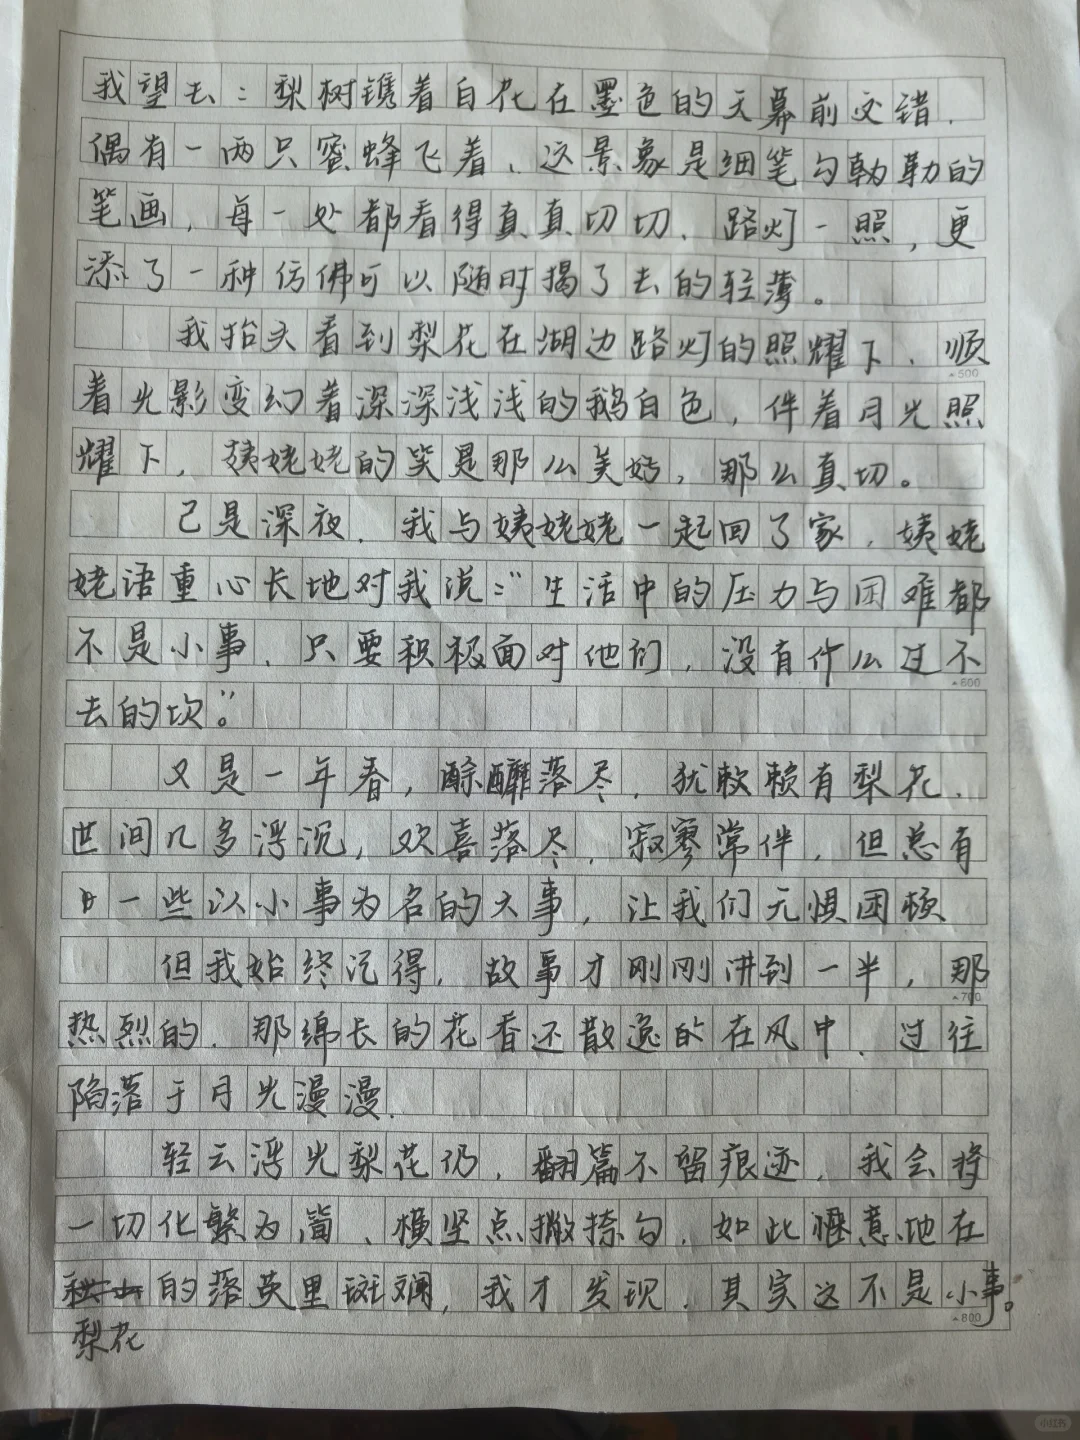 我望去：梨树镌着白花在墨色的天幕前交错，
偶有一两只蜜蜂飞着、这景象是细笔勾勒勒的
笔画，每一处都看得真真切切、路灯一照，更
添了一种仿佛可以随时揭了去的轻薄。
我抬头看到梨花在湖边路灯的照耀下、顺
▲500
着光影变幻着深深浅浅的鹅白色，伴着月光照
耀下，姨姥姥的笑是那么美好，那么真切。
已是深夜，我与姨姥姥一起回了家，姨姥
姥语重心长地对我说：“生活中的压力与困难都
不是小事、只要积极面对他们，没有什么过不
▲600
去的坎。”
又是一年春，酴醿落尽，犹赖有梨花、
世间几多浮沉，欢喜落尽，寂寥常伴，但总有
一些以小事为名的大事，让我们无惧困顿
但我始终记得，故事才刚刚讲到一半，那
▲700
热烈的、那绵长的花香还散逸的在风中、过往
陷落于月光漫漫、
轻云浮光梨花仍，翻篇不留痕迹，我会将
一切化繁为简、横竖点撇捺勾，如此惬意地在
梨花的落英里斑斓，我才发现，其实这不是小事。
▲800
小红书